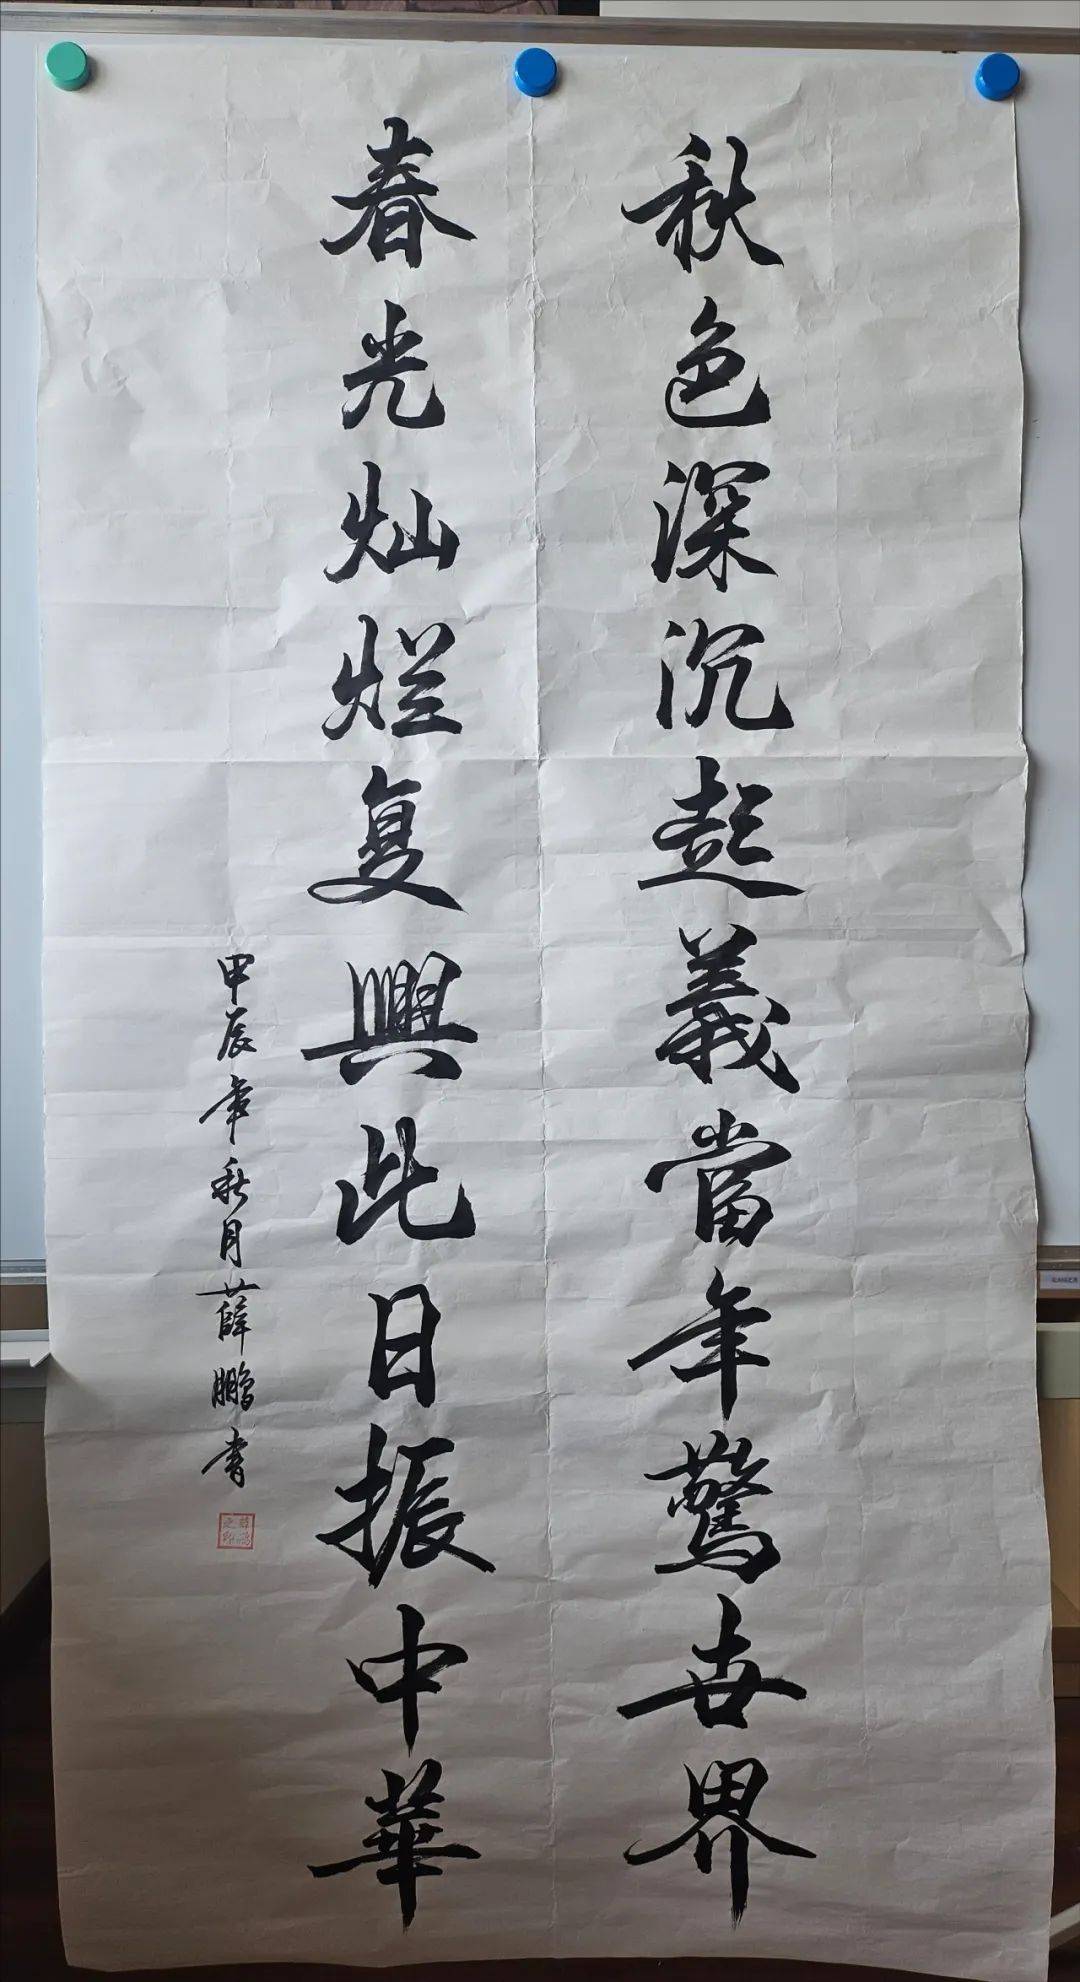 秋色深沉起義當年驚世界
春光灿烂复興此日振中華
甲辰年秋月薛鵬書